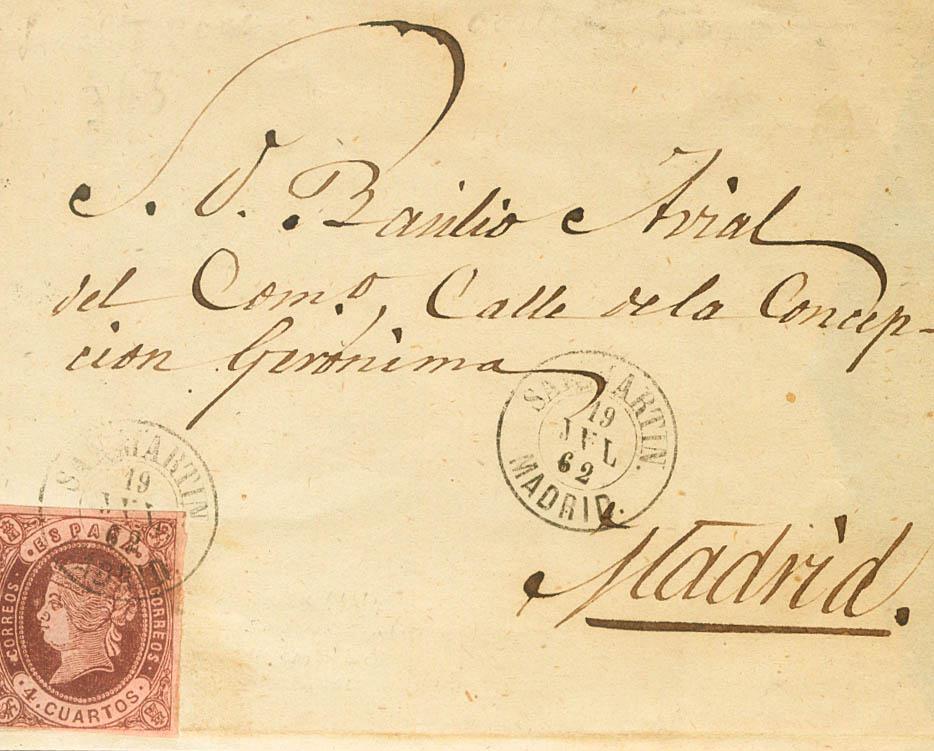 S. D. Basilio Avial
del Com.º, Calle de la Concep-
cion Geronima
SAN MARTIN.
19
JUL
62
MADRID.
SAN MARTIN
19
JUL
62
Madrid.
ESPAÑA
CORREOS
CORREOS
4 CUARTOS